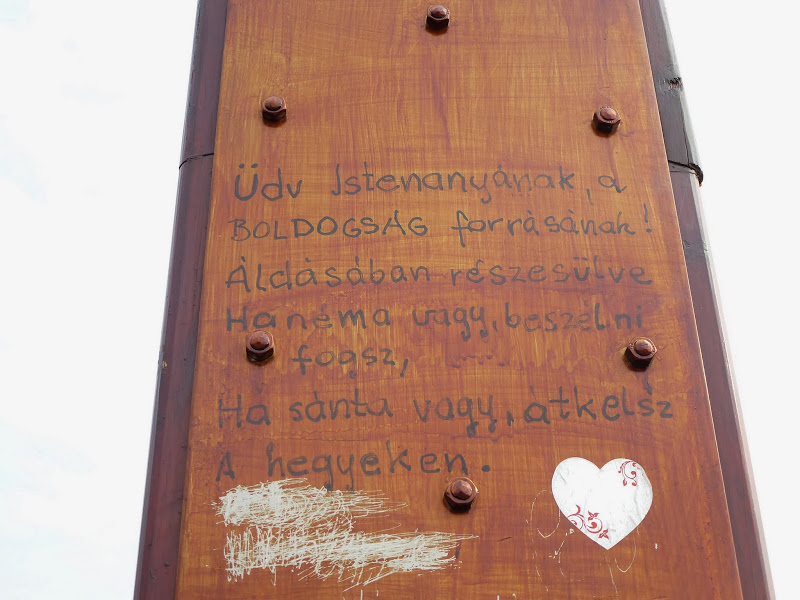 Üdv Istenanyának, a
BOLDOGSÁG forrásának!
Áldásában részesülve
Ha néma vagy, beszélni
fogsz,
Ha sánta vagy, átkelsz
A hegyeken.